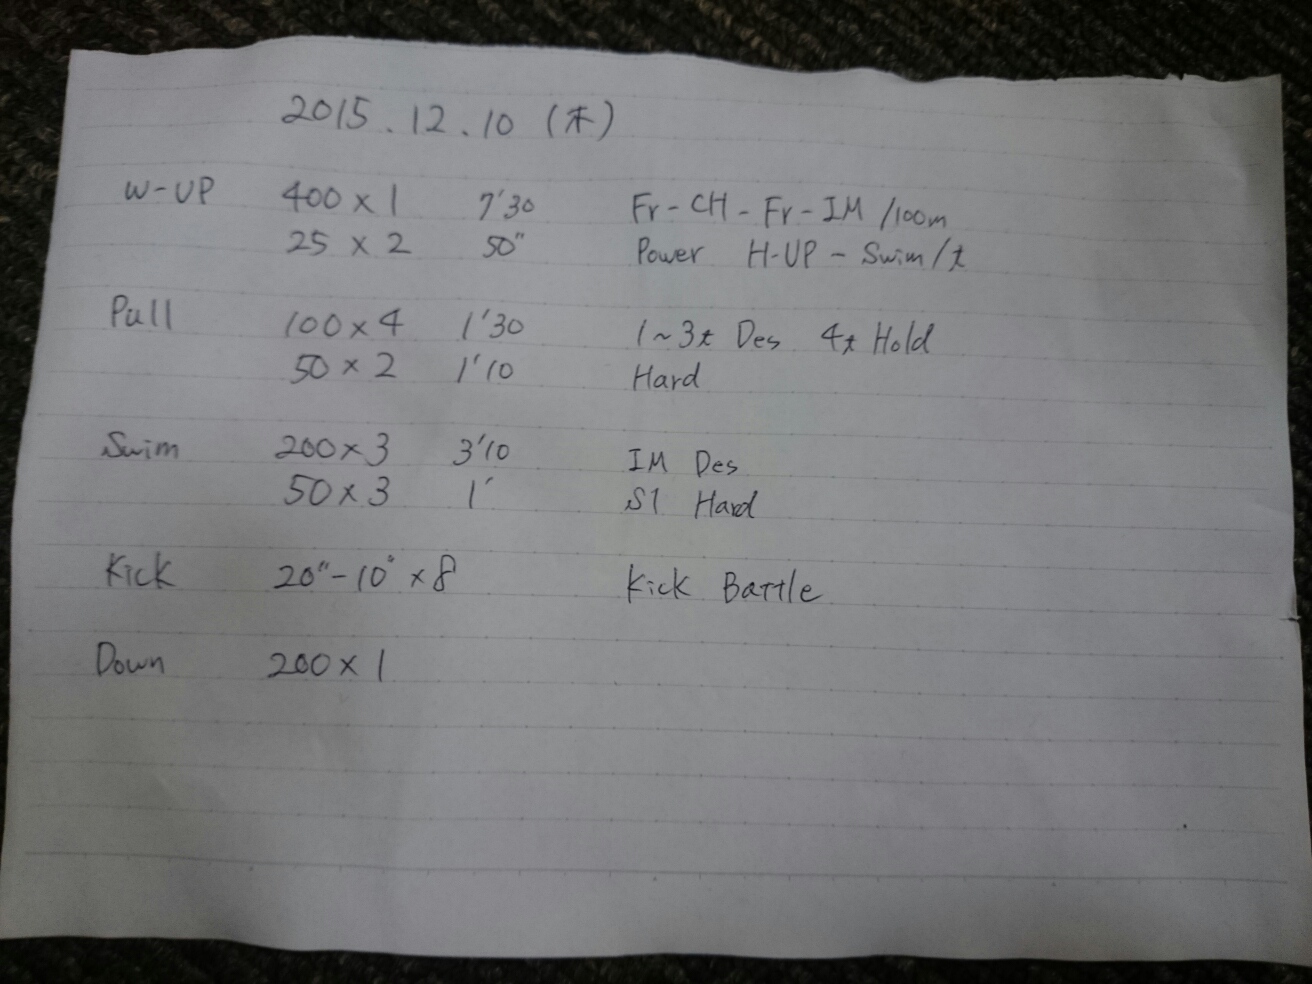 2015.12.10 (木)
W-UP 400×1 7'30 Fr-CH-Fr-IM/100m
25×2 50" Power H-UP - Swim/t
Pull 100×4 1'30 1~3t Des 4t Hold
50×2 1'10 Hard
Swim 200×3 3'10 IM Des
50×3 1' S1 Hard
Kick 20"-10"×8 Kick Battle
Down 200×1